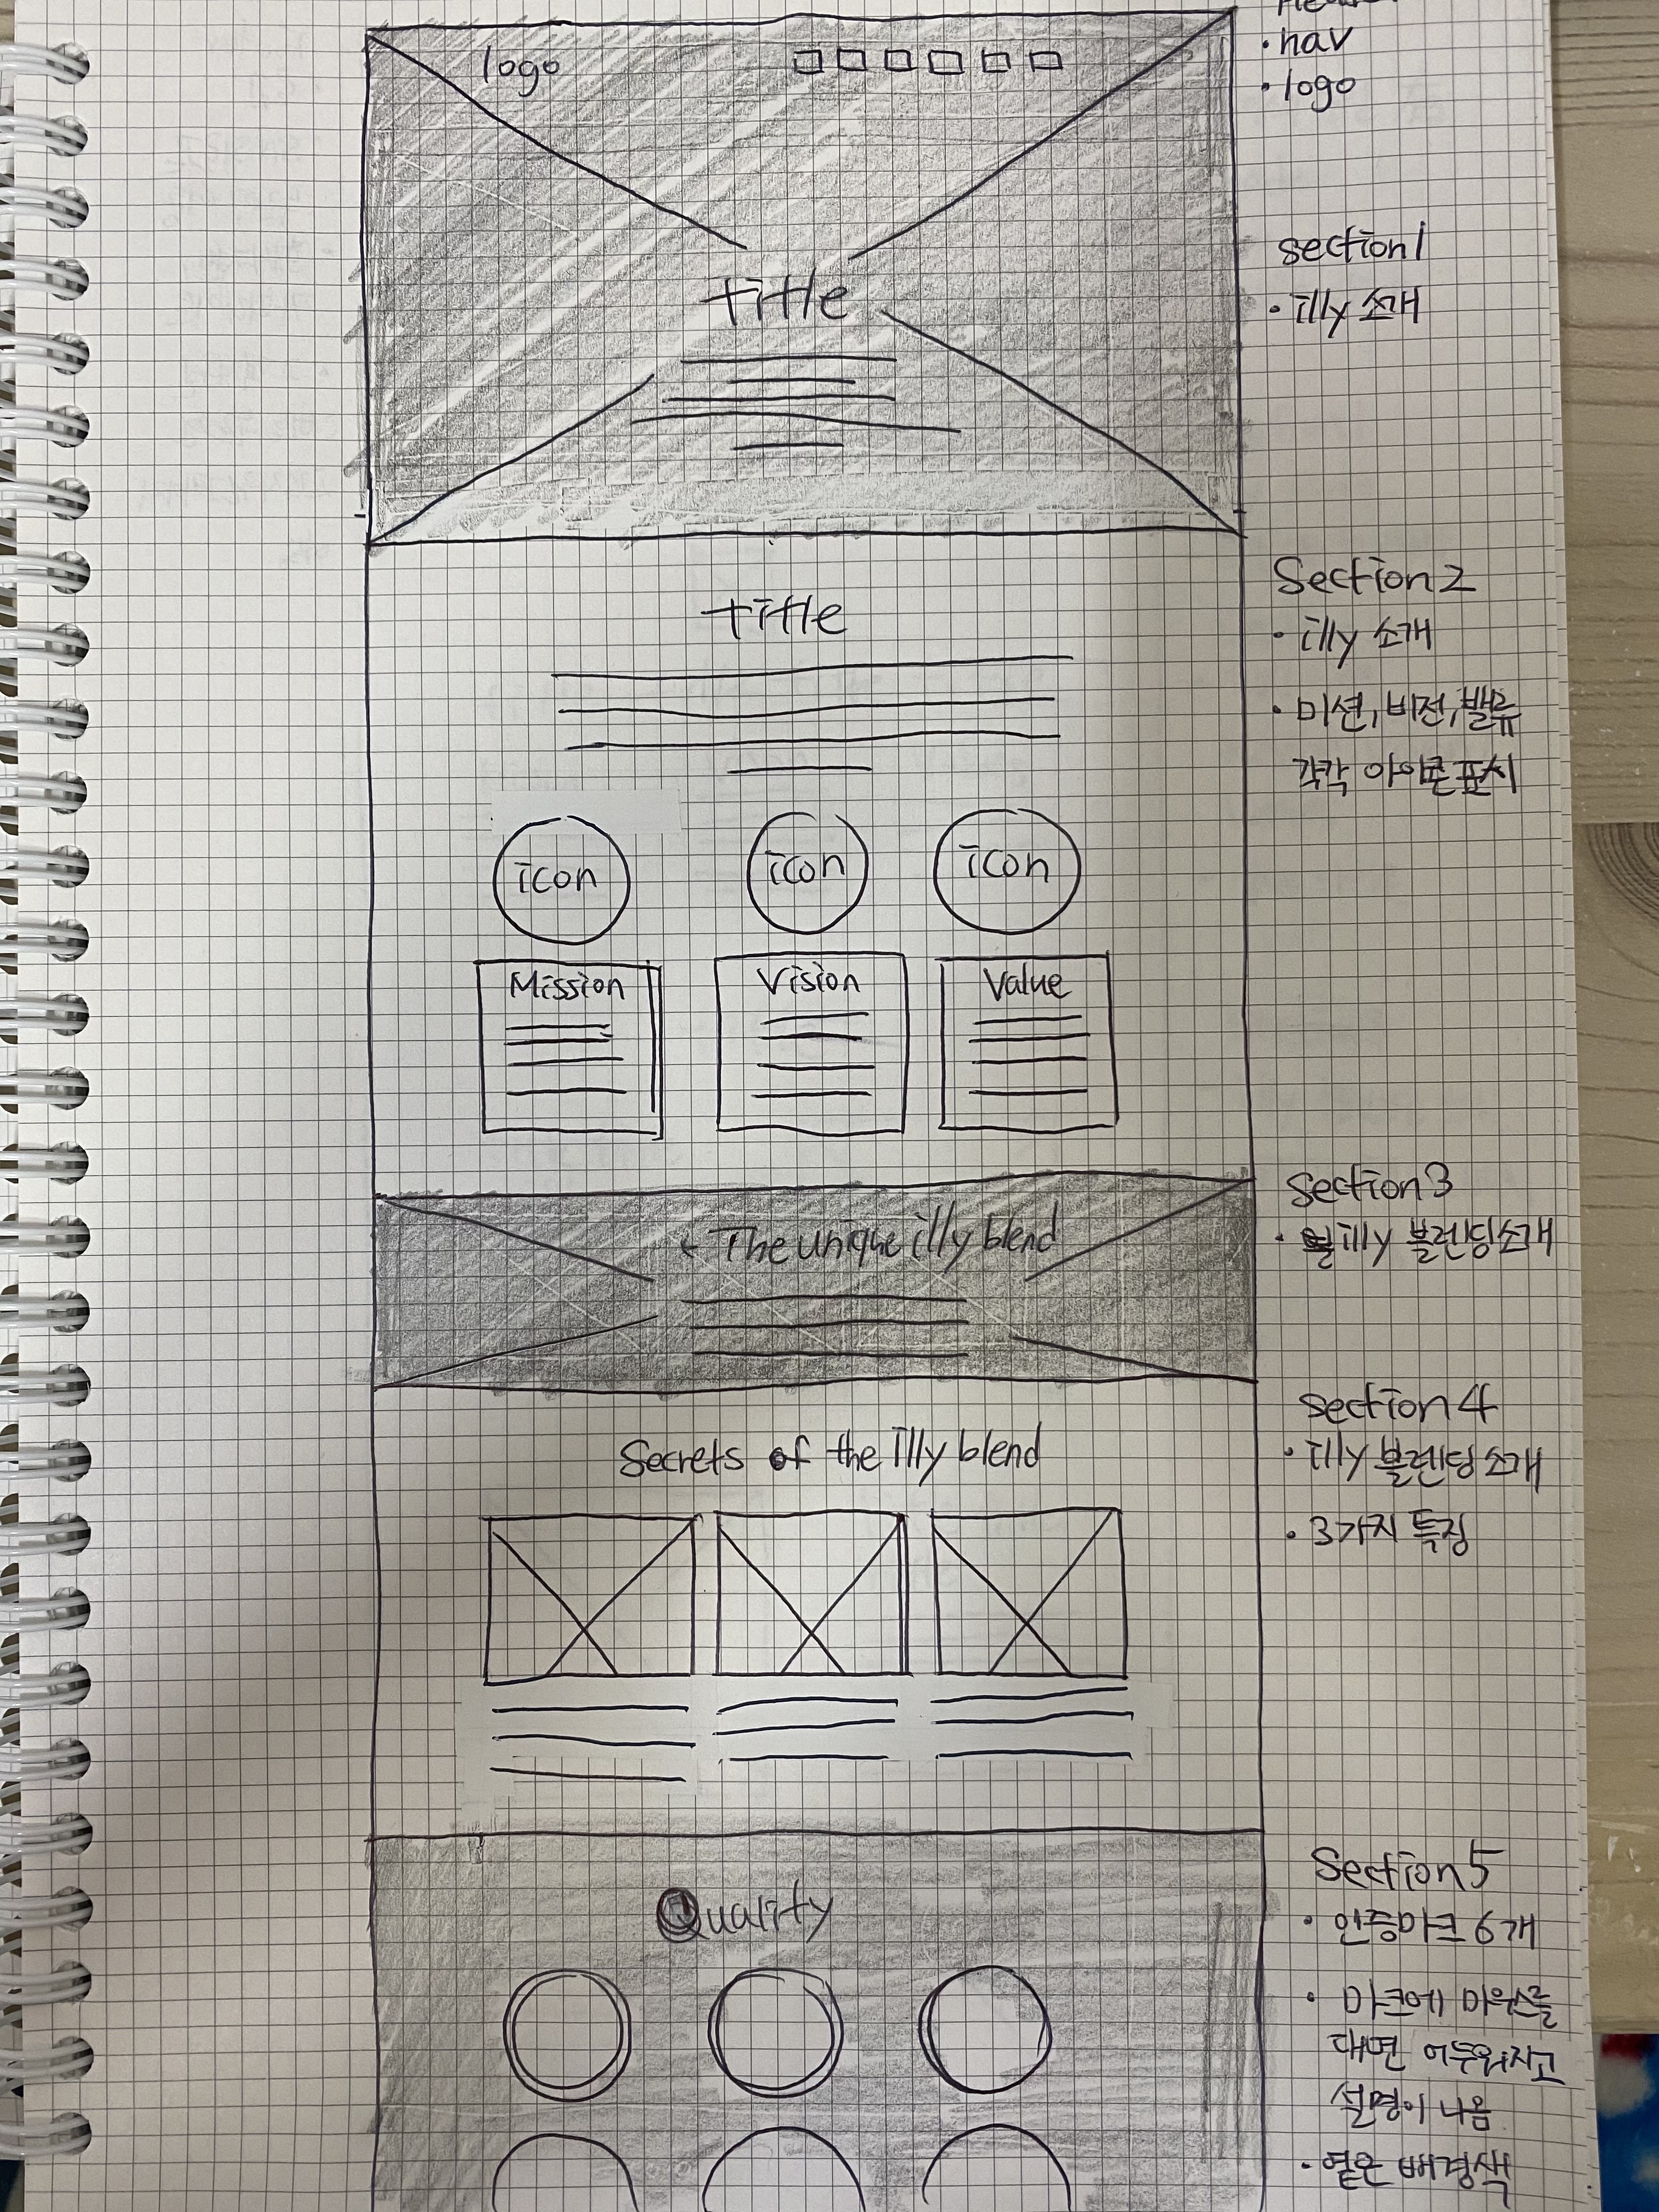 logo
title
title
icon
icon
icon
Mission
Vision
Value
The unique illy blend
Secrets of the illy blend
Quality
• nav
• logo
section1
• illy 소개
Section2
• illy 소개
• 미션, 비전, 밸류
각각 아이콘 표시
Section3
• illy 블렌딩 소개
Section4
• illy 블렌딩 소개
• 3가지 특징
Section5
• 인증마크 6개
• 마크에 마우스를
대면 어두워지고
설명이 나옴
• 옅은 배경색